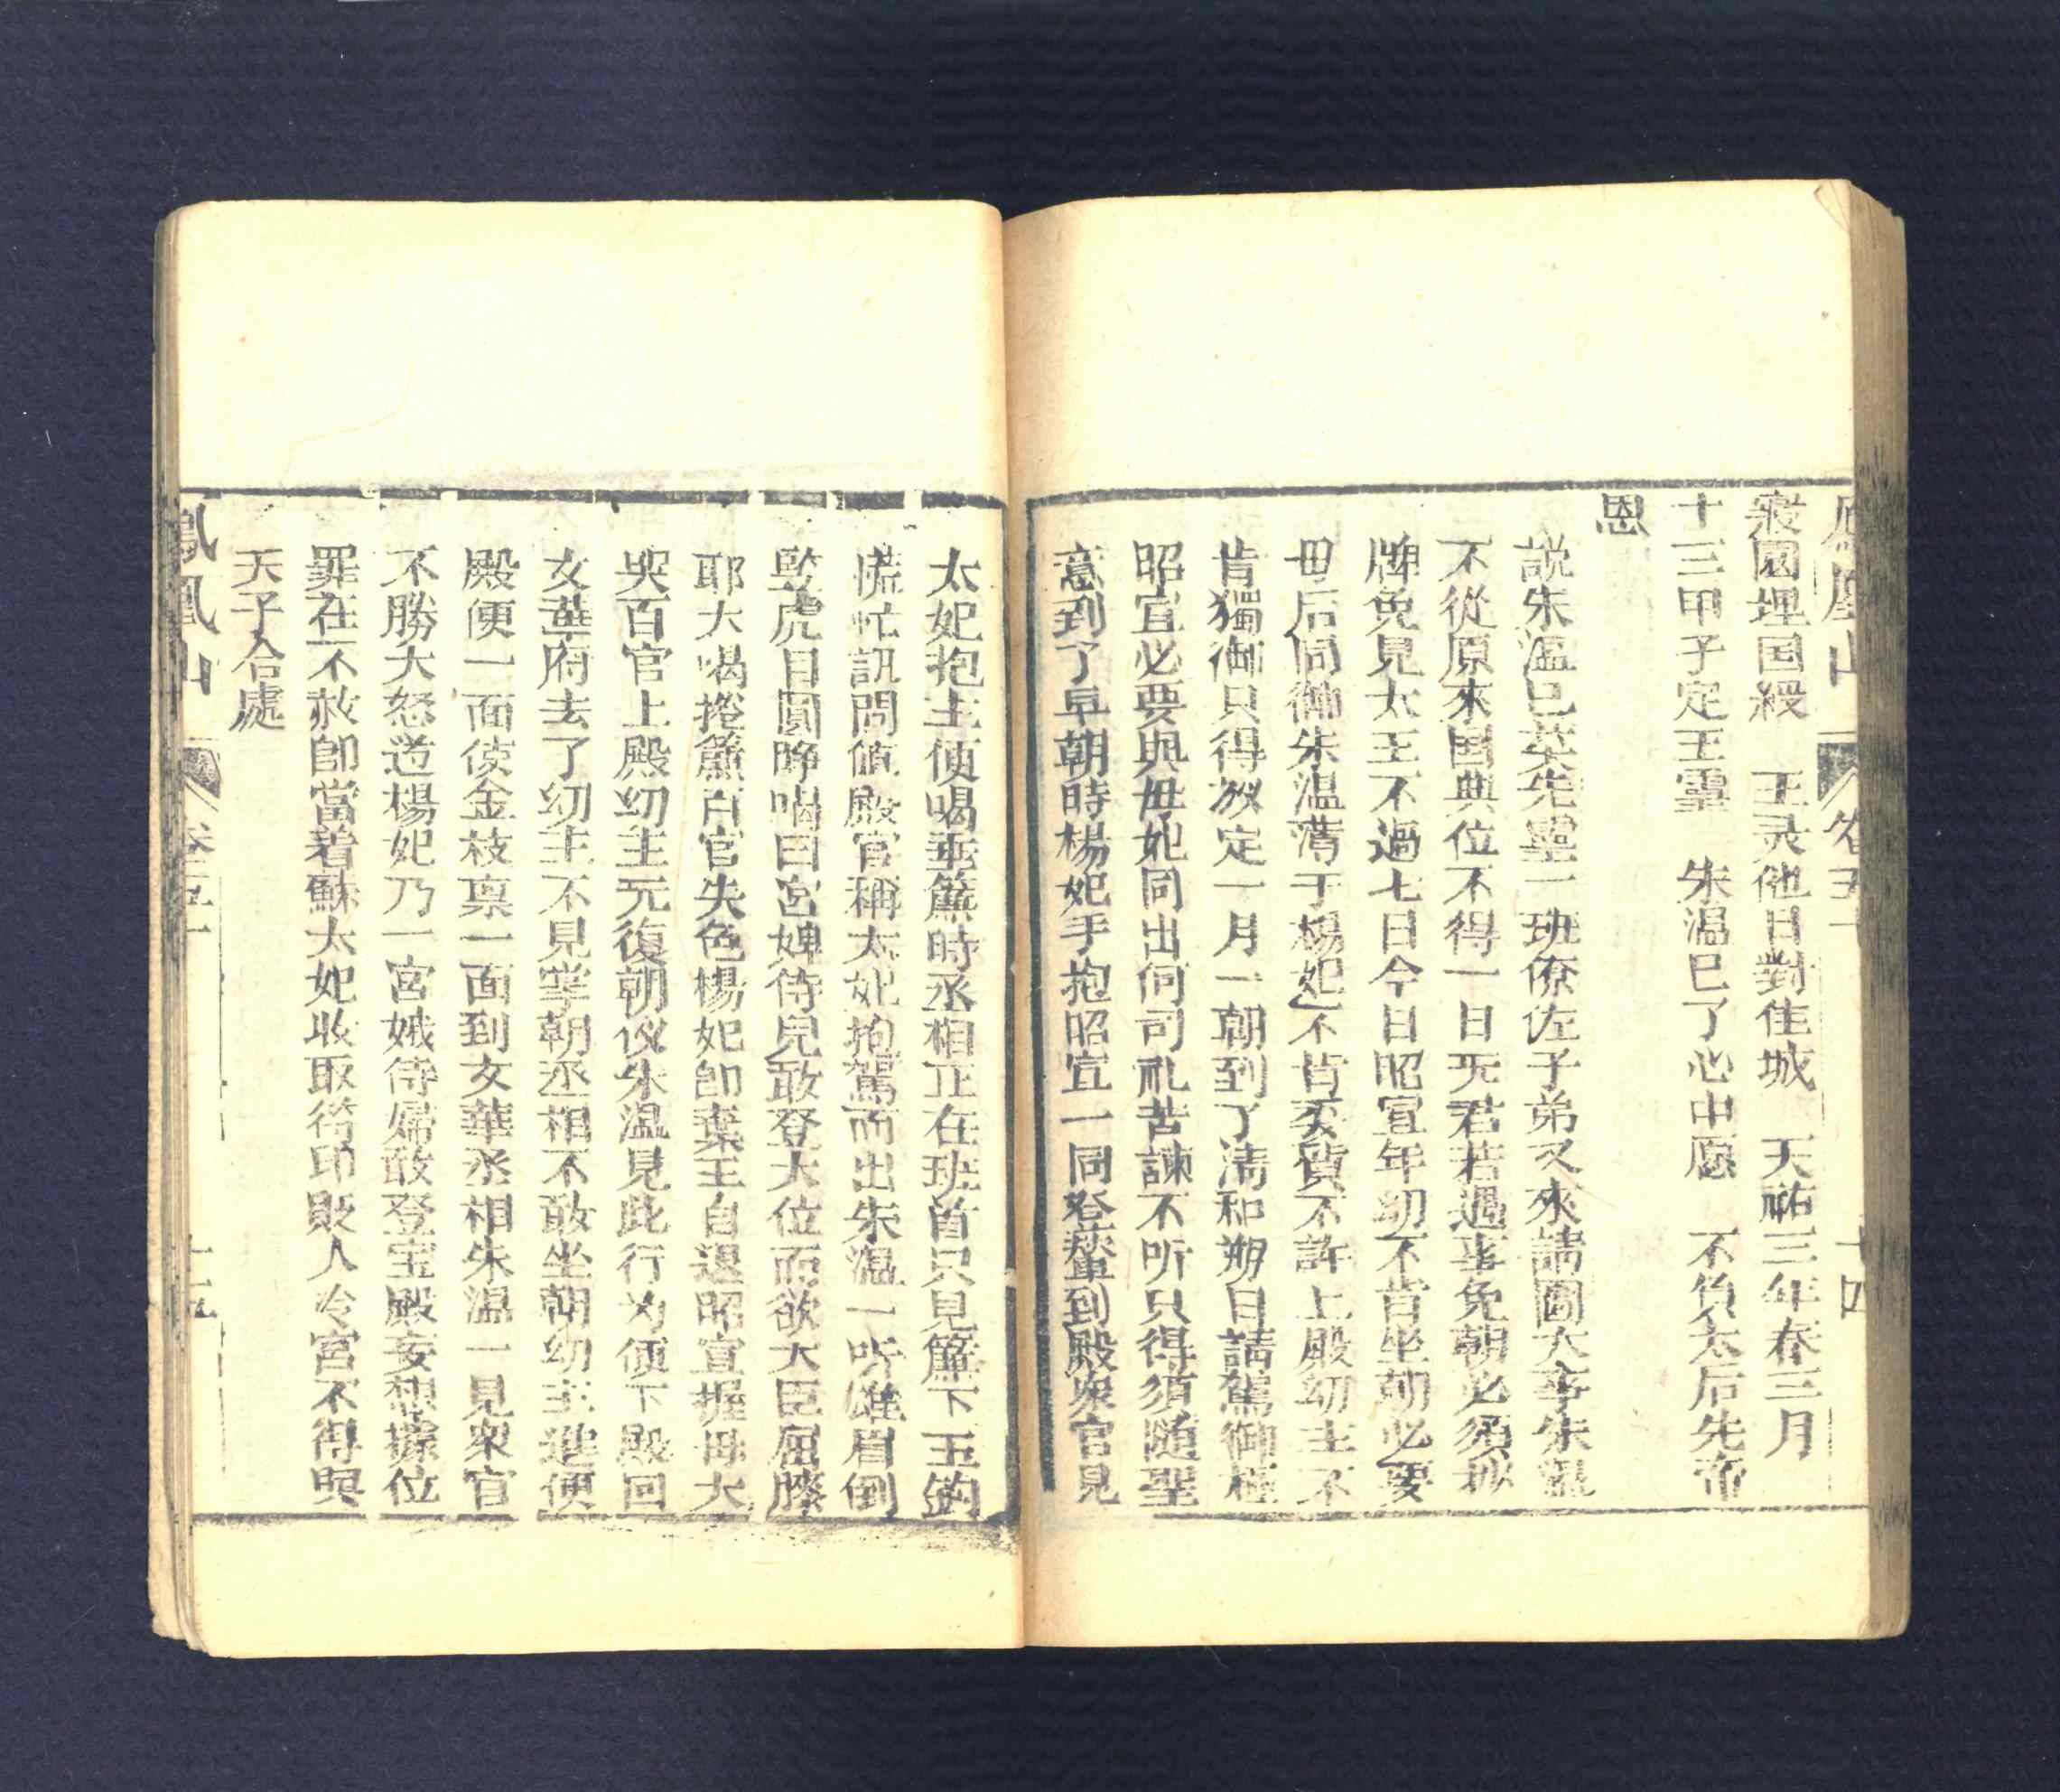 鳳凰山 卷五十 十四
寢園埋国綬 王灵他日對佳城 天祐三年春三月
十三甲子定王靈 朱温已了心中愿 不負太后先帝
恩
説朱溫已葬先靈一班僚佐子弟又來請圖大事朱溫
不從原來国典位不得一日旡君若遇事免朝必須抄
牌免見太王不過七日今日昭宣年幼不肯坐朝必要
毋后同御朱温薄于楊妃不肯委質不許上殿幼主不
肯獨御只得放定一月一朝到了清和朔日請駕御極
昭宣必要與母妃同出何司礼苦諫不听只得須随聖
意到了早朝時楊妃手抱昭宣一同登輦到殿衆官見
太妃抱主便喝垂簾時丞相正在班首只見簾下玉鈎
慌忙訊問值殿官稱太妃抱駕而出朱溫一听雄眉倒
竪虎目圓睁喝曰宮婢侍兒敢登大位而欲大臣屈膝
耶大喝捲簾百官失色楊妃卽棄王自退昭宣握母大
哭百官上殿幼主旡復朝仪朱溫見此行为便下殿回
女華府去了幼主不見掌朝丞相不敢坐朝幼主進便
殿便一面使金枝禀一面到女華丞相朱溫一見衆官
不勝大怒道楊妃乃一宮娥侍婦敢登宝殿妄想據位
罪在不赦卽當着蘇太妃收取符印貶入冷宮不得與
天子合處
鳳凰山 卷五十 十五